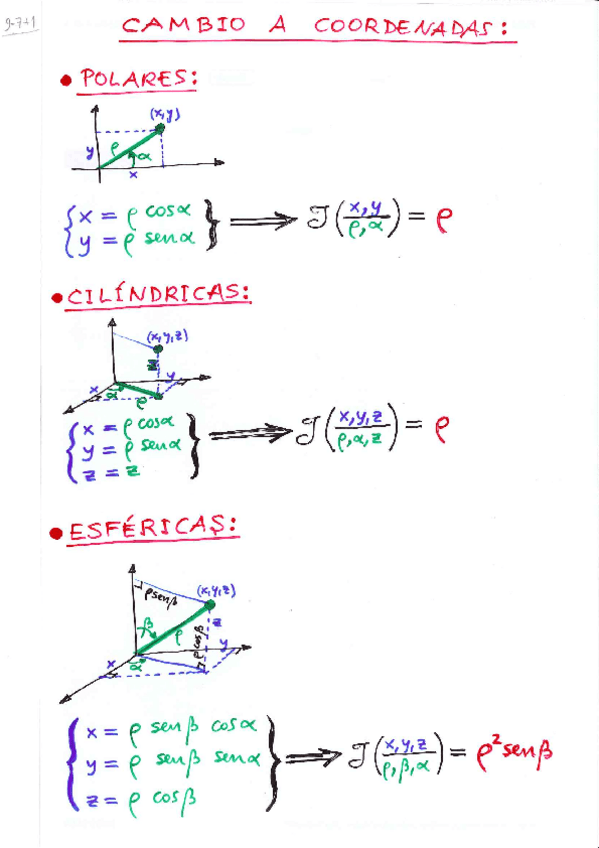 9-7+1
CAMBIO A COORDENADAS:
• POLARES:
(x,y)
y ρ α
x
{ x = ρ cosα
y = ρ senα } ⟹ J(x,y / ρ,α) = ρ
• CILÍNDRICAS:
(x,y,z)
z
x α y
ρ
{ x = ρ cosα
y = ρ senα
z = z } ⟹ J(x,y,z / ρ,α,z) = ρ
• ESFÉRICAS:
(x,y,z)
ρsenβ
β ρ ρcosβ z
x α y
{ x = ρ senβ cosα
y = ρ senβ senα
z = ρ cosβ } ⟹ J(x,y,z / ρ,β,α) = ρ²senβ